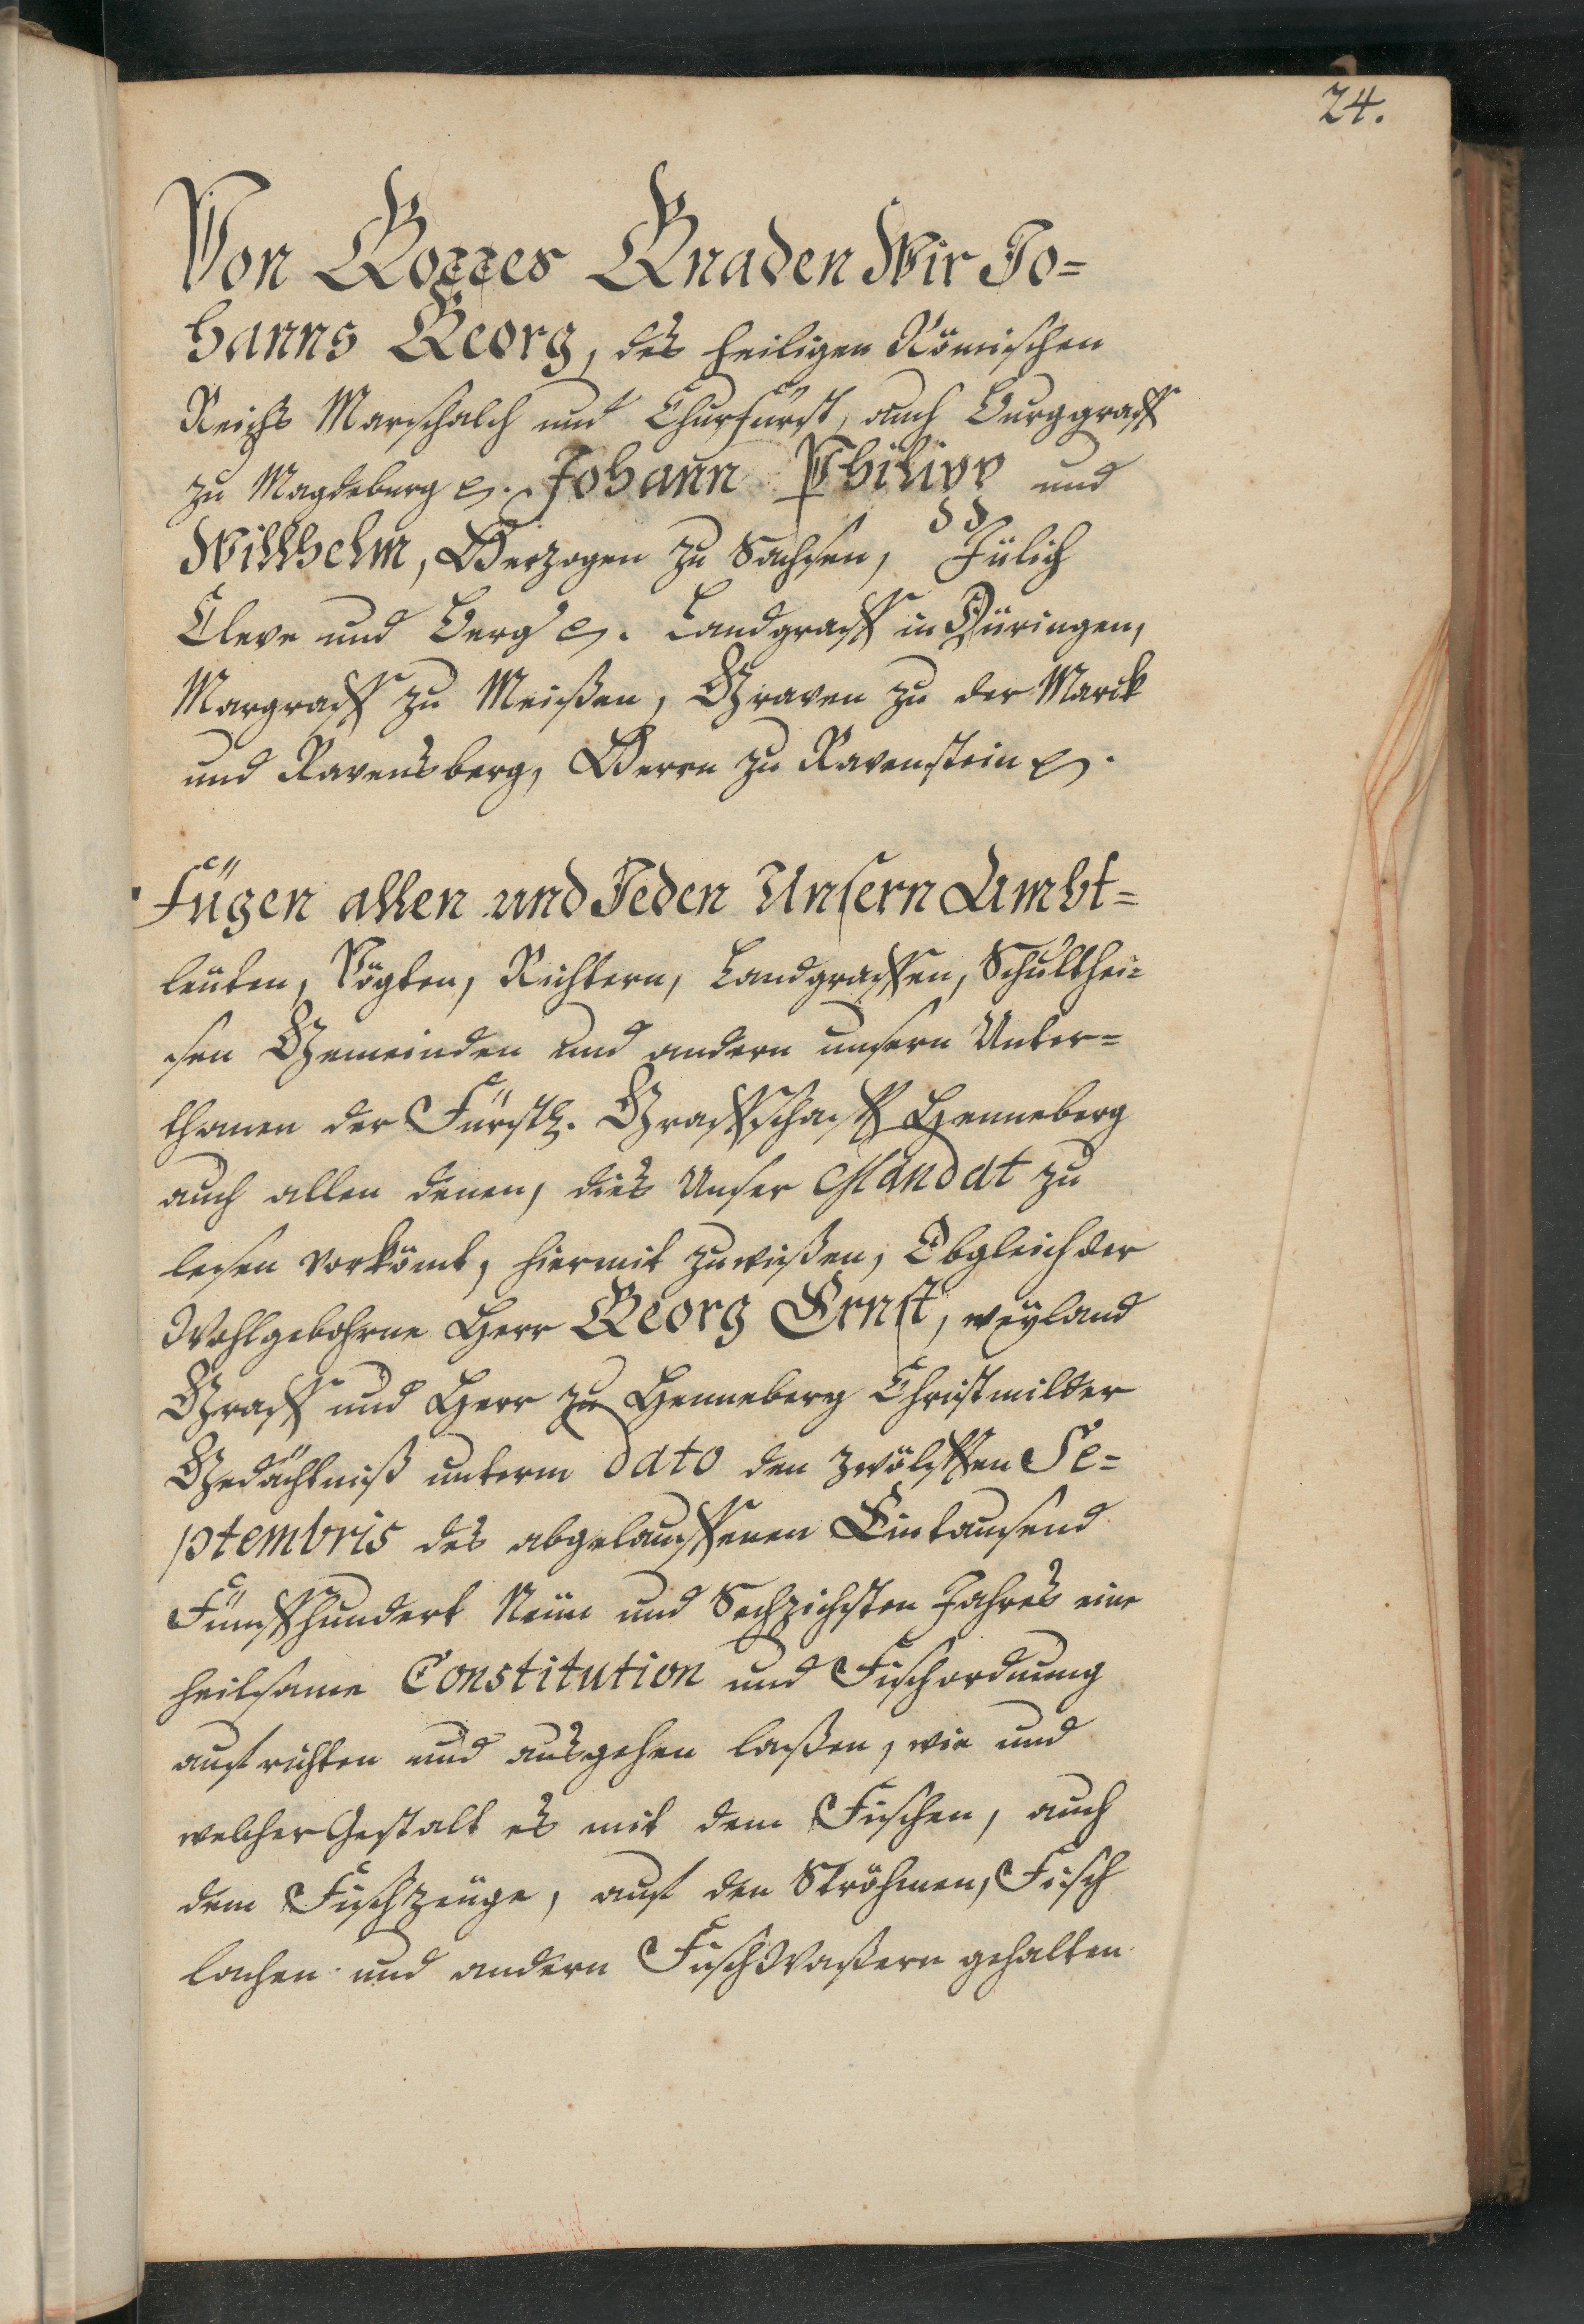 24.
Von Gottes Gnaden Wir Jo=
hanns Georg, des heiligen Römischen
Reichs Marschalch und Churfürst, auch Burggraff
zu Magdeburg ꝛc. Johann Philipp und
Willhelm, Herzogen zu Sachsen, Jülich
Cleve und Berg ꝛc. Landgraff in Düringen,
Margraff zu Meißen, Graven zu der Marck
und Ravensberg, Herrn zu Ravenstein ꝛc.
Fügen allen und Jeden Unsern Ambt=
leuten, Vögten, Richtern, Landgraffen, Schulthei=
sen Gemeinden und andern unsern Unter=
thanen der Fürstl. Graffschafft Henneberg
auch allen denen, dies Unser Mandat zu
lesen vorkömt, hiermit zuwißen, Obgleich der
Wohlgebohrne Herr Georg Ernst, weyland
Graff und Herr zu Henneberg Christmilder
Gedächtniß unterm dato den zwölfften Se=
ptembris des abgelauffenen Eintausend
Fünffhundert Neün und Sechzichsten Jahres eine
heilsame Constitution und Fischordnung
aufrichten und ausgehen laßen, wie und
welcher Gestalt es mit dem Fischen, auch
dem Fischzeüge, auf den Ströhmen, Fisch
lachen und andern FischWaßern gehalten